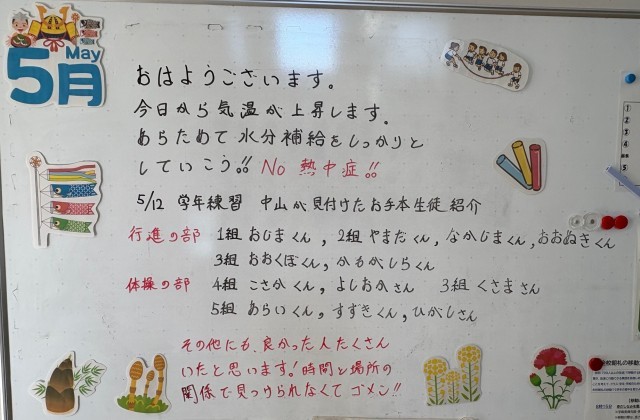 5月
May
おはようございます。
今日から気温が上昇します。
あらためて水分補給をしっかりと
していこう!! No 熱中症!!
5/12 学年練習 中山が見付けたお手本生徒紹介
行進の部 1組 おじまくん, 2組 やまだくん, なかじまくん, おおぬきくん
3組 おおくぼくん, かもがしらくん
体操の部 4組 こさかくん, よしおかさん 3組 くさまさん
5組 あらいくん, すずきくん, ひがしさん
その他にも、良かった人たくさん
いたと思います!時間と場所の
関係で見つけられなくてゴメン!!